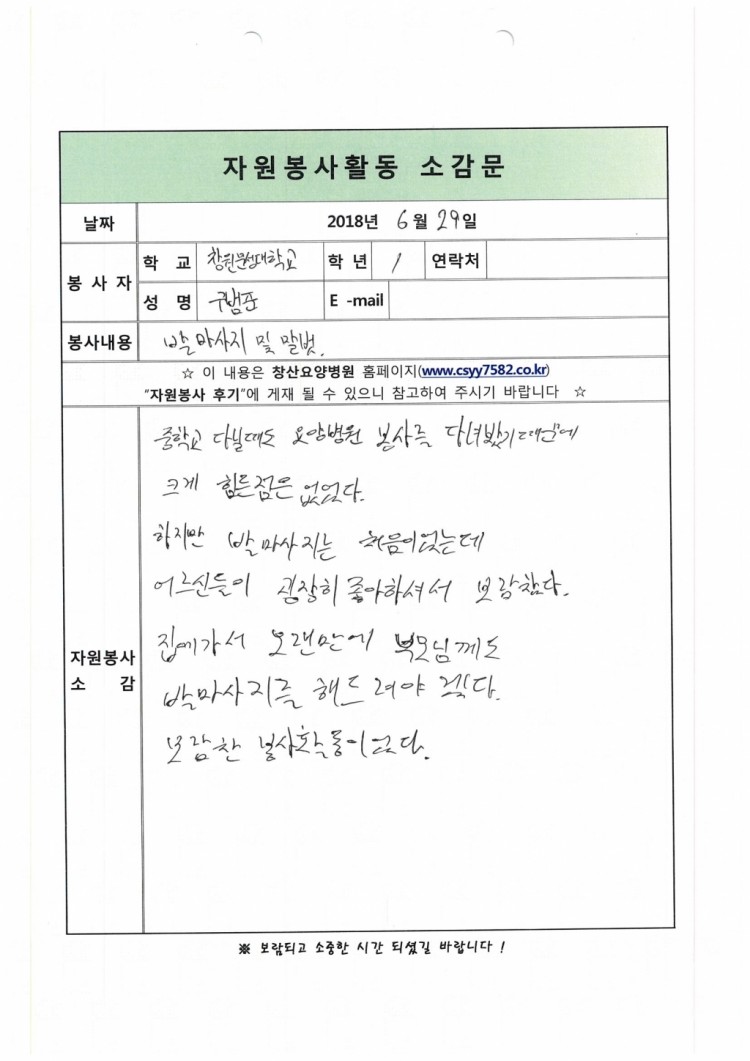 자원봉사활동 소감문
날짜 2018년 6월 29일
봉사자 학 교 창원문성대학교 학 년 1 연락처
성 명 구범준 E -mail
봉사내용 발 마사지 및 말벗.
☆ 이 내용은 창산요양병원 홈페이지(www.csyy7582.co.kr)
"자원봉사 후기"에 게재 될 수 있으니 참고하여 주시기 바랍니다 ☆
자원봉사 소 감
중학교 다닐때도 요양병원 봉사를 다녀봤기때문에
크게 힘든점은 없었다.
하지만 발 마사지는 처음이었는데
어르신들이 굉장히 좋아하셔서 보람찼다.
집에가서 오랜만에 부모님께도
발마사지를 해드려야 겠다.
보람찬 봉사활동이었다.
※ 보람되고 소중한 시간 되셨길 바랍니다 !